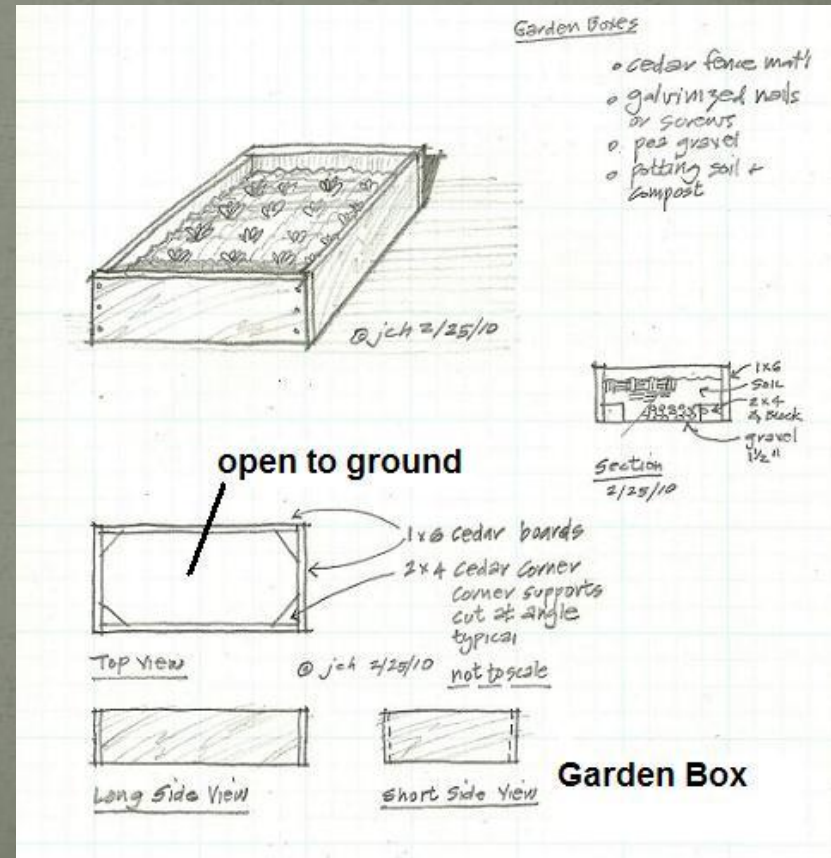 Garden Boxes
• cedar fence mat'l
• galvinized nails
or screws
• pea gravel
• potting soil +
compost
© jch 2/25/10
1x6
SOIL
2x4
block
gravel
1½"
Section
2/25/10
open to ground
1x6 cedar boards
2x4 cedar corner
corner supports
cut at angle
typical
Top View
© jch 2/25/10
not to scale
Long Side View
Short Side View
Garden Box